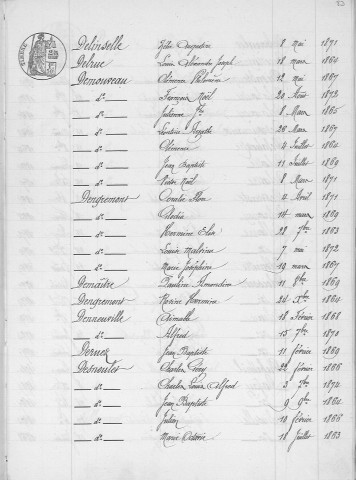 Delinselle Zélie Augustine 8 Mai 1871
Debrue Louis Alexandre Joseph 18 mars 1860
Demouveau Clémence 12 Mai 1867
d° François Noël 20 Août 1872
d° Julienne 8 Mars 1865
d° Léontine 26 Mars 1867
d° Clémence 4 Juillet 1864
d° Jean Baptiste 11 Juillet 1869
d° Victor Noël 8 Mars 1871
Dengremont 4 Avril 1871
d° 14 mars 1869
d° Hermine Elise 22 7bre 1863
d° Louise Malvina 7 mai 1872
d° Marie Joséphine 19 mars 1867
Demaître Pauline Amandine 11 8bre 1869
Dengremont Marie Hermine 24 Xbre 1864
Denneuville Aimable 18 Février 1868
d° Alfred 15 7bre 1870
Jean Baptiste 11 février 1869
Desnoules Charles 22 février 1866
d° Charles Louis Alfred 3 1874
d° Jean Baptiste 9 9bre 1860
d° Julien 10 février 1866
d° Marie 18 Juillet 1863